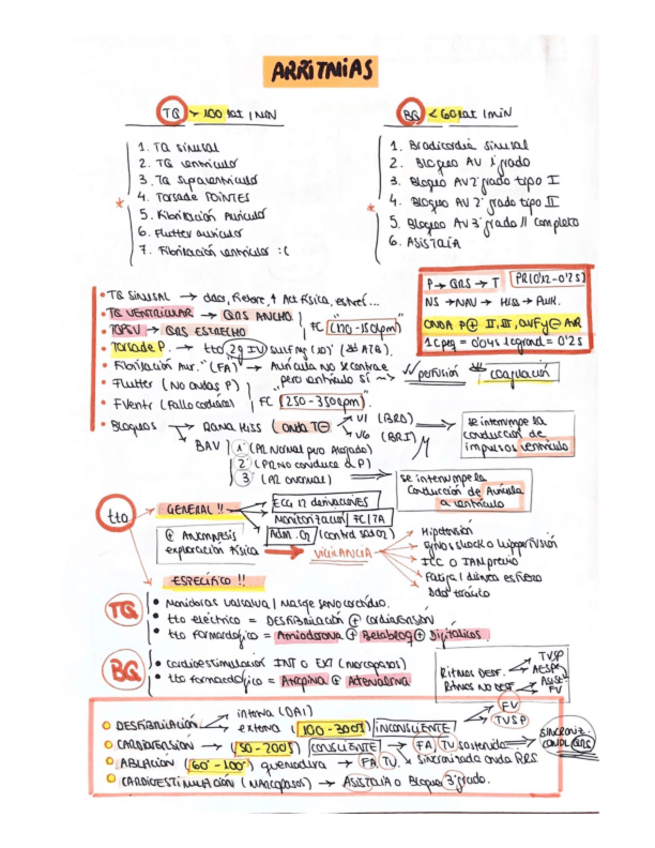 ARRITMIAS
TQ > 100 lat / MIN
1. TQ sinusal
2. TQ ventricular
3. TQ Supraventricular
4. Torsade POINTES
5. Fibrilación Auricular
6. Flutter auricular
7. Fibrilación ventricular :(
BQ < 60 lat / min
1. Bradicardia sinusal
2. Bloqueo AV 1º grado
3. Bloqueo AV 2º grado tipo I
4. Bloqueo AV 2º grado tipo II
5. Bloqueo AV 3º grado // completo
6. ASISTOLIA
P → QRS → T PR(0'12-0'2s)
NS → NAV → Hiss → Purk.
ONDA P⊕ II, III, aVF y ⊖ AVR
1 cpeq = 0'04s 1 cgrand = 0'2s
• TQ SINUSAL → dolor, fiebre, ↑ Act física, estrés...
• TQ VENTRICULAR → QRS ANCHO
• TQPSV → QRS ESTRECHO
FC (120-150lpm)
• Torsade P. → tto 2g IV sulf Mg (10')
• Fibrilación Aur. (FA) → Aurícula no se contrae
pero ventrículo sí ~> perfusión coagulación
• Flutter (No ondas P)
• F Ventr (Fallo cardíaco)
FC (250-350lpm)
• Bloqueos → RAMA HISS (onda T⊖ → V1 (BRD)
→ V6 (BRI)
se interrumpe la
conducción de
impulsos ventrículo
BAV 1º (PR Normal pero Alargado)
2º (PR No conduce a P)
3º (PR anormal)
se interrumpe la
conducción de Aurícula
a ventrículo
tto
GENERAL !!
ECG 12 derivaciones
Monitorización FC/TA
Adm. O2 (control satO2)
@ Anamnesis
exploración física → VIGILANCIA
Hipotensión
Signos shock o hipoperfusión
ICC o IAM previo
Fatiga / disnea esfuerzo
Dolor torácico
ESPECÍFICO !!
TQ
• Maniobras valsava / Masaje seno carotídeo.
• tto eléctrico = DESFIBRILACIÓN ⊕ cardioversión
• tto farmacológico = Amiodarona ⊕ Betabloq ⊕ Digitálicos.
BQ
• cardioestimulación INT o EXT (marcapasos)
• tto farmacológico = Atropina @ Adrenalina
Ritmos DESF. TVSP
Ritmos NO DESF
FV
DESFIBRILACIÓN → interna (DAI)
externa (100-300J) INCONSCIENTE → FV
TVSP
CARDIOVERSIÓN → (50-200J) CONSCIENTE → FA TV sostenida → SINCRONIZ.
QRS
ABLACIÓN (60º-100º) quemadura → FA TV. x sincronizada onda RRS
CARDIOESTIMULACIÓN (MARCAPASOS) → ASISTOLIA o Bloqueo 3º grado.